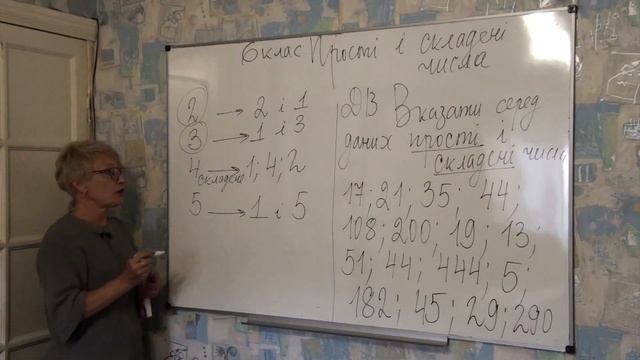 6 клас Прості і складені
числа
2 → 2 і 1
3 → 1 і 3
4 → 1; 4; 2
складене
5 → 1 і 5
ДЗ Вказати серед
даних прості і
складені числа
17; 21; 35; 44;
108; 200; 19; 13;
51; 44; 444; 5;
182; 45; 29; 290